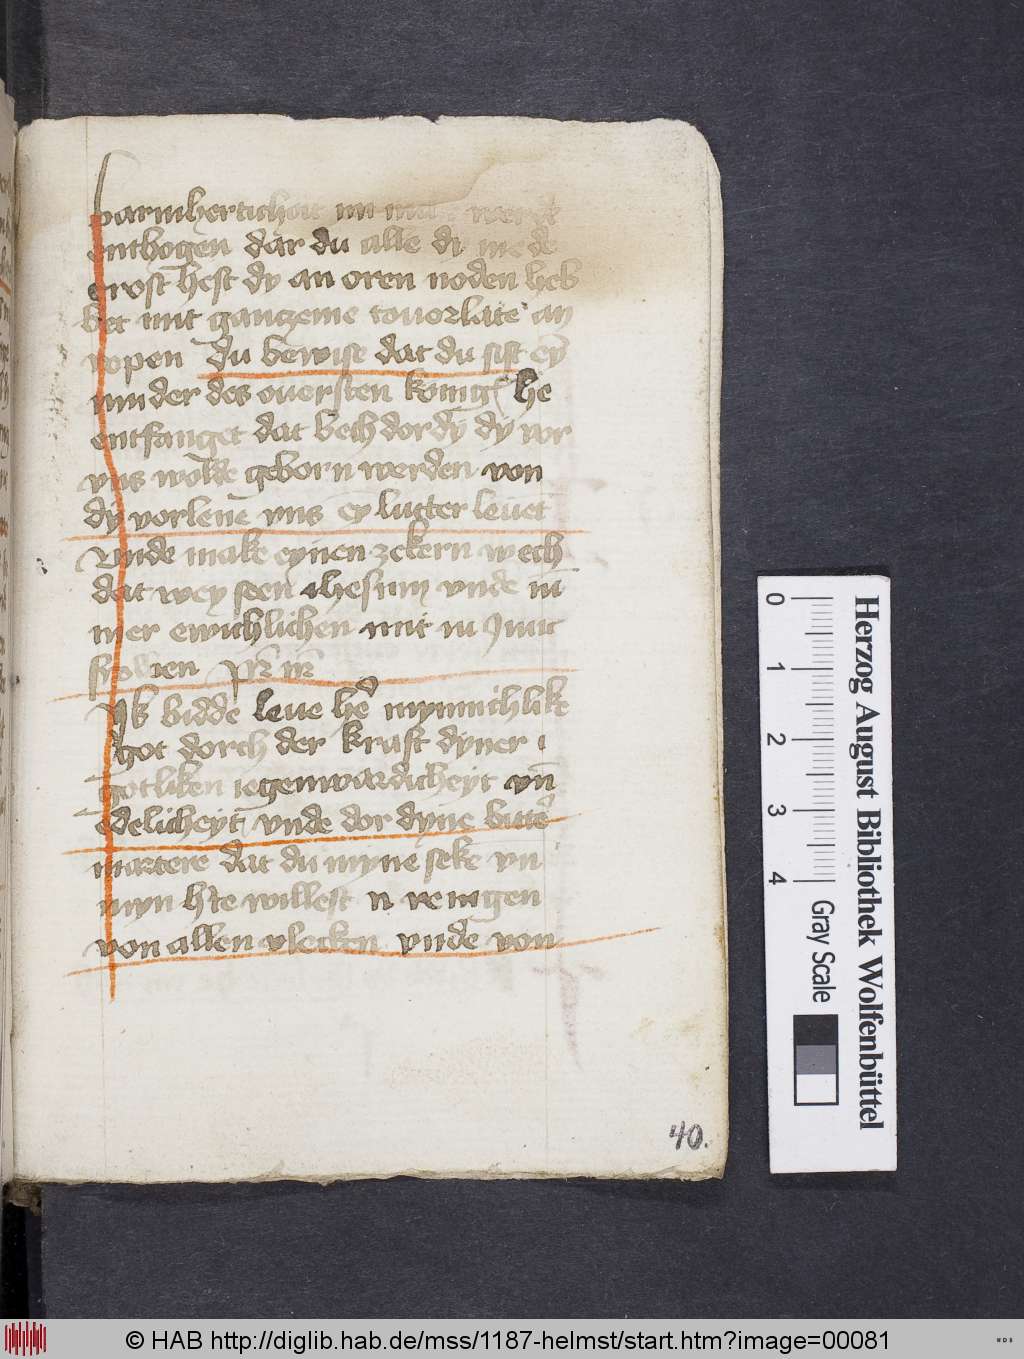 barmherticheit nu mach werde
enthogen dar du alle dy mede
trost hest dy an oren noden heb
bet mit gantzeme touorlate an
ropen du bewise dat du sist ey̅
mu der des ouersten konig he
entfanget dat bech dor dy dy vor
vns wolde geborn werden von
dy vorlene vns ey lutter leuet
Vnde make eynen zekern wech
dat wey seen ihesum vnde im̅
mer ewichlichen mit in
frowden
Ik bidde leue he mynnichlike
got dorch der kraft dyner
gotliken iegenwardicheyt vn̅
edelicheyt vnde dor dyne bitte
martere dat du myne seke vn
myn hte willest reinigen
von allen vlecken vnde von
40.
Herzog August Bibliothek Wolfenbüttel
0 1 2 3 4
Gray Scale
© HAB http://diglib.hab.de/mss/1187-helmst/start.htm?image=00081